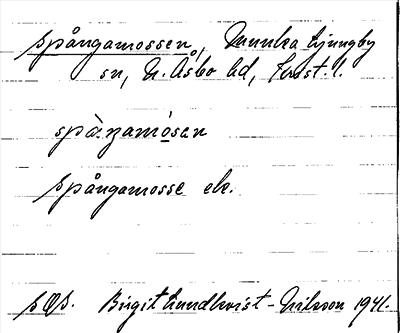 Spångamossen, Munka Ljungby
sn, N. Åsbo hd, Krist. l.
spàŋamósen
Spångamosse ek.
Birgit Lundkvist-Nilsson 1941.